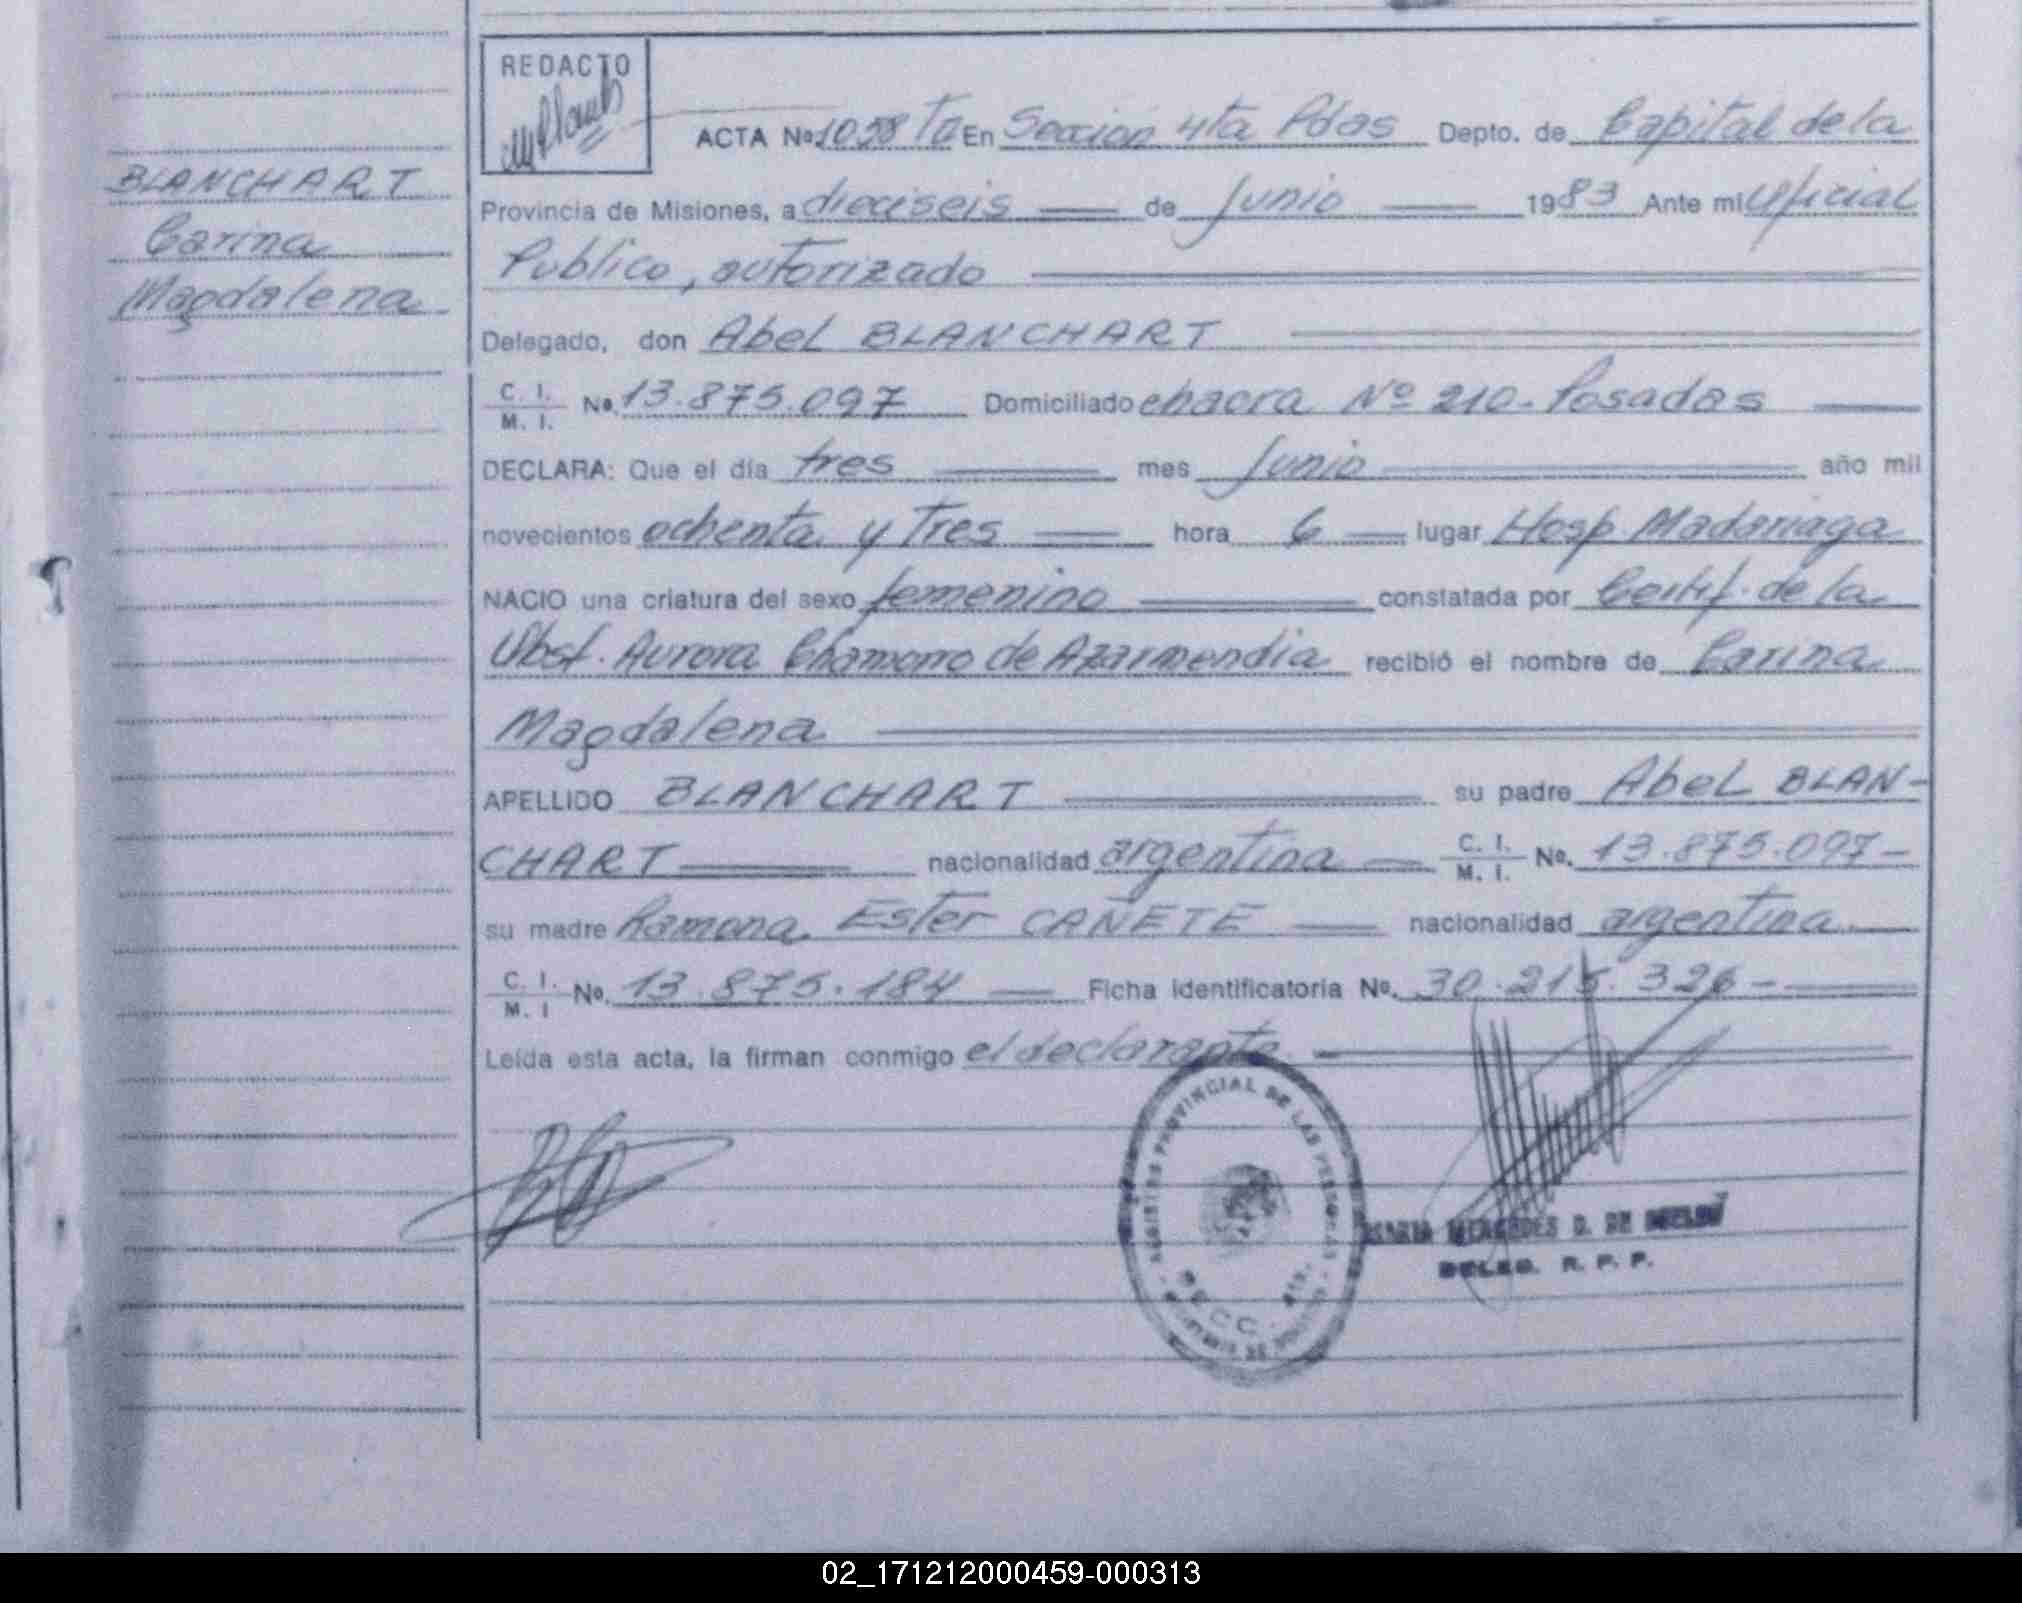 REDACTO
ACTA No. 1058 To En Sección 4ta Pdas Depto. de Capital de la
BLANCHART
Carina
Magdalena
Provincia de Misiones, a dieciseis de Junio 1983 Ante mi Oficial
Publico, autorizado
Delegado, don Abel BLANCHART
C. I. / M. I. No. 13.875.097 Domiciliado chacra Nº 210 - Posadas
DECLARA: Que el día tres mes Junio año mil
novecientos ochenta y tres hora 6 lugar Hosp. Madariaga
NACIO una criatura del sexo femenino constatada por Certif. de la
Obst. Aurora Chamorro de Azarmendia recibió el nombre de Carina
Magdalena
APELLIDO BLANCHART su padre Abel BLAN-
CHART nacionalidad argentina C. I. / M. I. No. 13.875.097-
su madre Ramona Ester CAÑETE nacionalidad argentina
C. I. / M. I No. 13.875.184 Ficha identificatoria No. 30.215.326-
Leída esta acta, la firman conmigo el declarante
REGISTRO PROVINCIAL DE LAS PERSONAS
MARIA MERCEDES D. DE
DELEG. R. P. P.
02_171212000459-000313